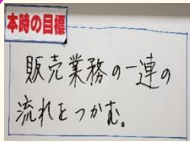 本時の目標
販売業務の一連の
流れをつかむ。